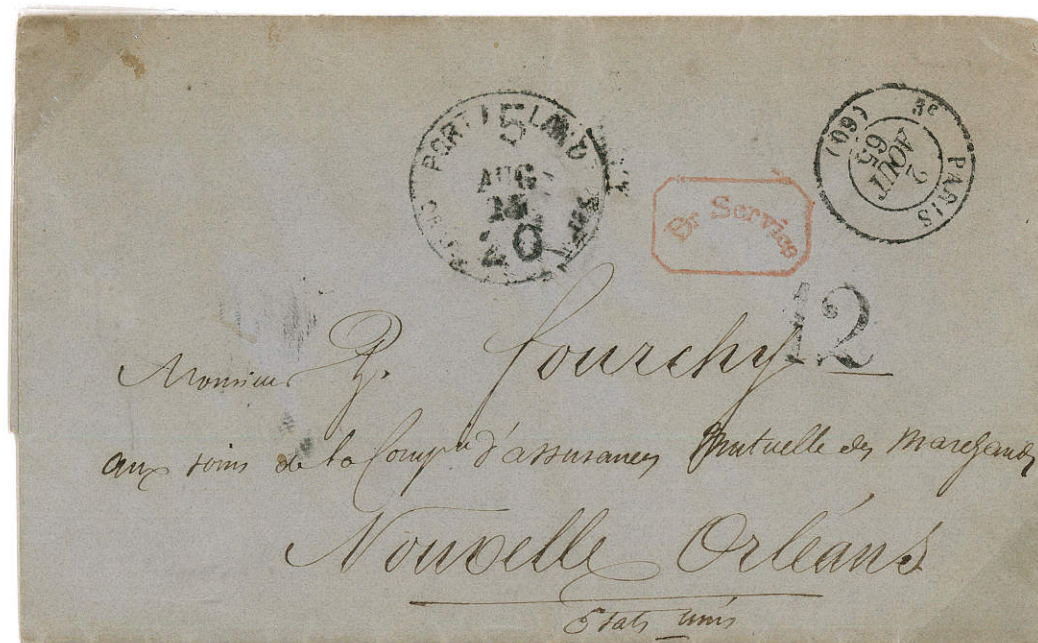 PORTLAND
5
AUG
20
Br Service
3E
PARIS
2
AOUT
65
(60)
12
Monsieur P. Fourchy
aux soins de la Compie d'assurances Mutuelle des Marchands
Nouvelle Orléans
Etats unis